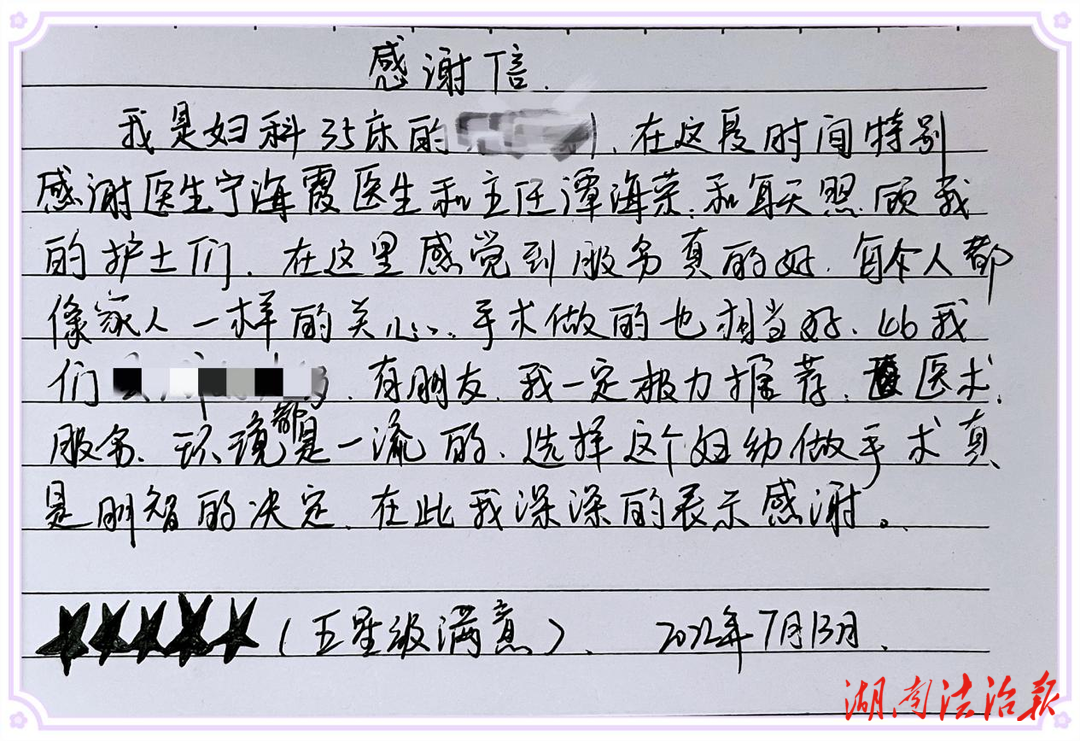 感谢信.
我是妇科35床的 . 在这段时间特别
感谢医生宁海霞医生和主任谭海荣.和每天照顾我
的护士们. 在这里感觉到服务真的好. 每个人都
像家人一样的关心.. 手术做的也相当好. 比我
们 . 有朋友. 我一定极力推荐. 医术.
服务. 环境都是一流的. 选择这个妇幼做手术真
是明智的决定. 在此我深深的表示感谢。
★★★★★(五星级满意). 2022年7月13日.
湖南法治报